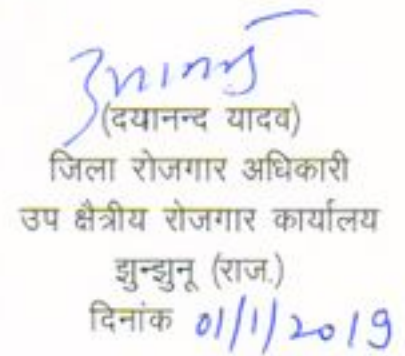 (दयानन्द यादव)
जिला रोजगार अधिकारी
उप क्षैत्रीय रोजगार कार्यालय
झुन्झुनू (राज.)
दिनांक 01/1/2019